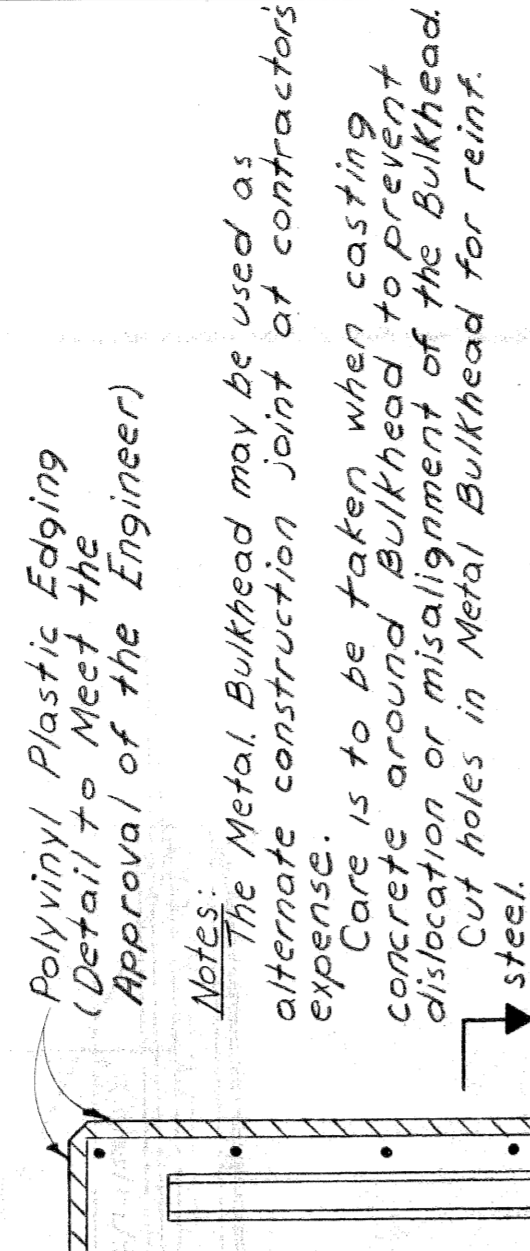 Polyvinyl Plastic Edging
(Detail to Meet the
Approval of the Engineer)
Notes:
The Metal Bulkhead may be used as
alternate construction joint at contractors
expense.
Care is to be taken when casting
concrete around Bulkhead to prevent
dislocation or misalignment of the Bulkhead.
Cut holes in Metal Bulkhead for reinf.
steel.